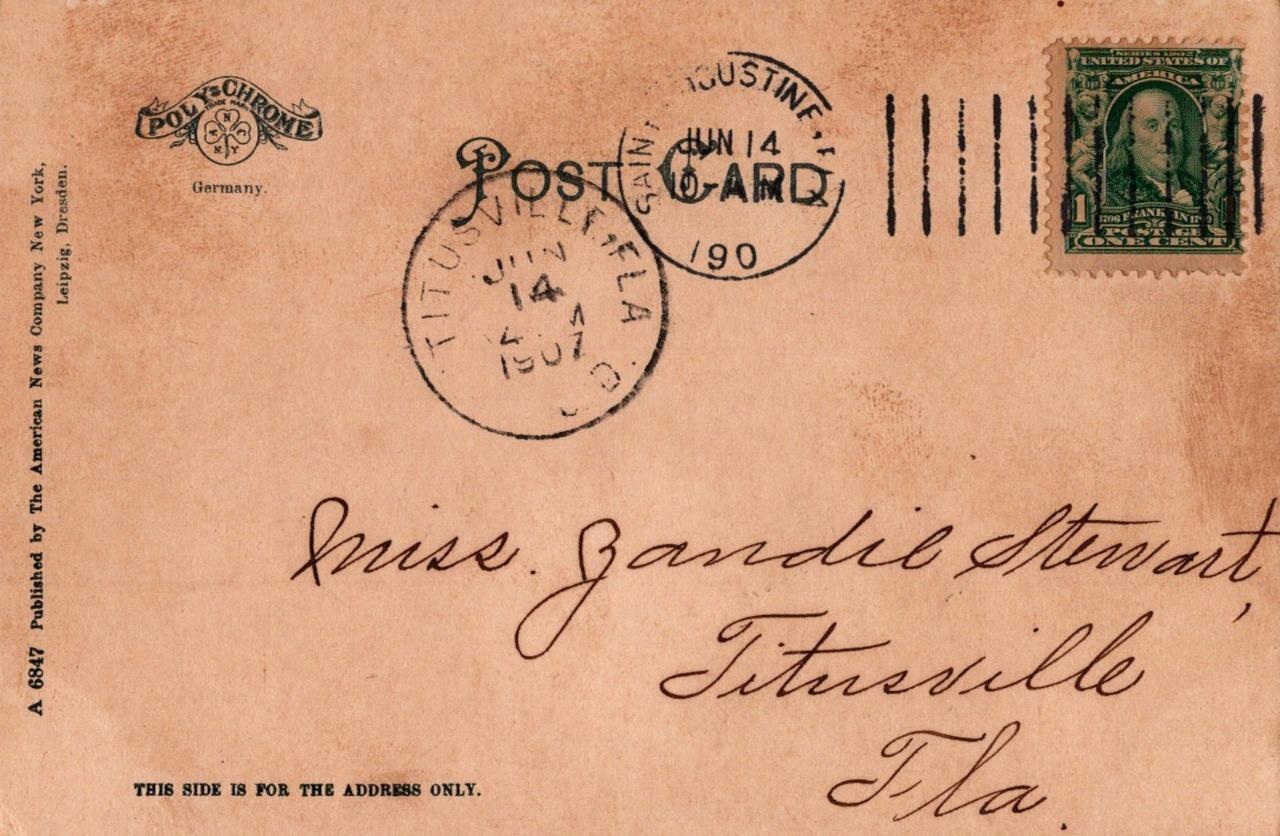 POLY-CHROME
TRADE MARK
N
A C
N Y
Germany.
POST CARD
SAINT AUGUSTINE,
JUN 14
190
TITUSVILLE, FLA
JUN
14
1907
SERIES 1902
UNITED STATES OF
AMERICA
1 1
1706 FRANKLIN 1790
POSTAGE
ONE CENT
A 6847 Published by The American News Company New York,
Leipzig, Dresden.
Miss. Zandie Stewart,
Titusville
Fla.
THIS SIDE IS FOR THE ADDRESS ONLY.